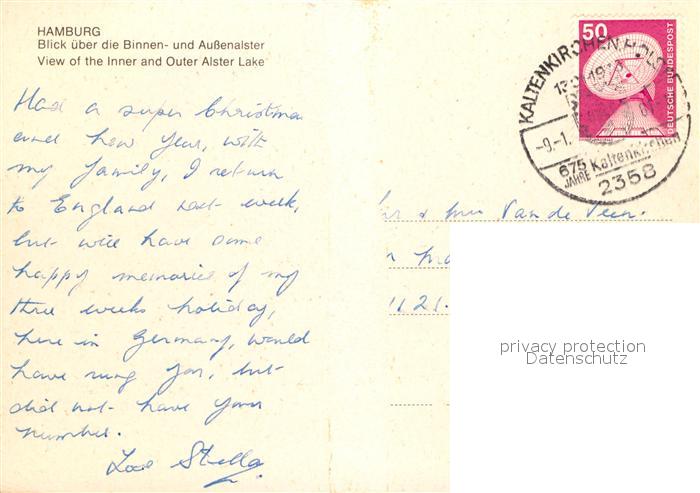 HAMBURG
Blick über die Binnen- und Außenalster
View of the Inner and Outer Alster Lake
50
DEUTSCHE BUNDESPOST
KALTENKIRCHEN, HOLST
-9.-1.
675 JAHRE Kaltenkirchen
2358
Had a super Christmas
and New Year, with
my family, I return
to England next week,
but will have some
happy memories of my
three weeks holiday,
here in Germany, would
have rung you, but
did not have your
number.
Love Stella
& Mrs Van de Veen.
21.
privacy protection
Datenschutz